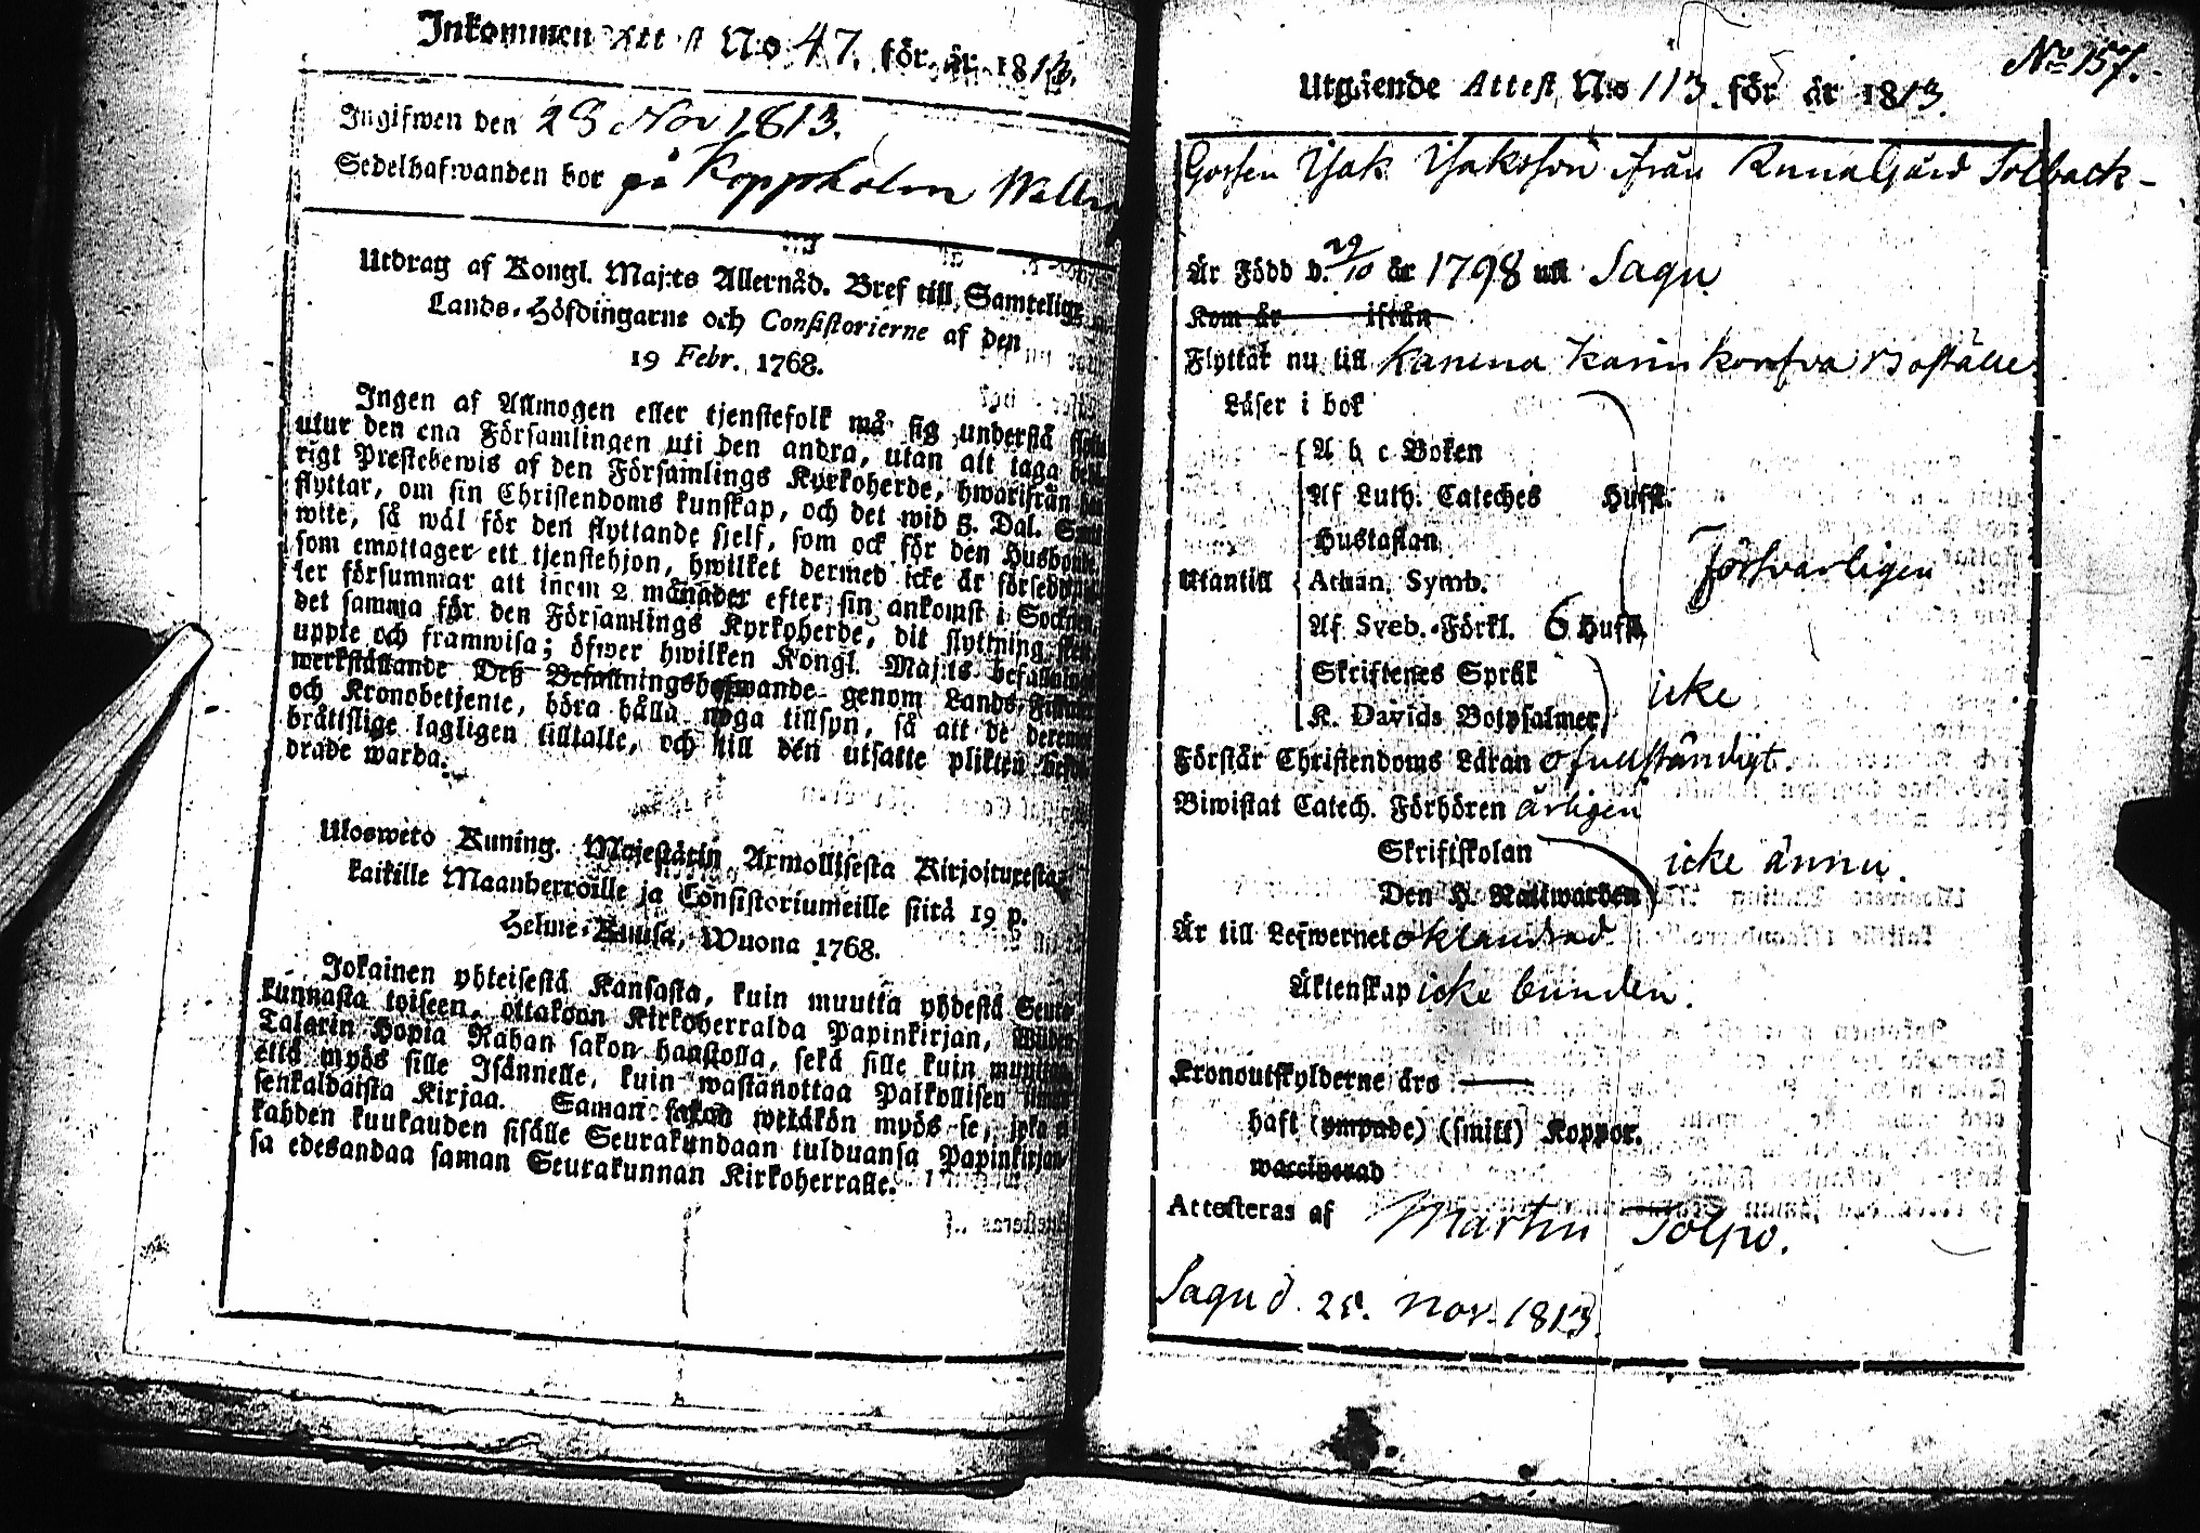 Inkommen Attest N:o 47. för år 1813.
Ingifwen den 28 Nov 1813.
Sedelhafwanden bor på Koppholm
Utdrag af Kongl. Maj:ts Allernåd. Bref till Samtelige
Lands-Höfdingarne och Consistorierne af den
19 Febr. 1768.
Ingen af Allmogen eller tjenstefolk må sig understå
utur den ena Församlingen uti den andra, utan att taga
rigt Prestebewis af den Församlings Kyrkoherde, hwarifrån
flyttar, om sin Christendoms kunskap, och det wid 5. Dal.
wite, så wäl för den flyttande sjelf, som ock för den Husbonde
som emottager ett tjenstehjon, hwilket dermed icke är försedd
ler försummar att inom 2 månader efter sin ankomst i Socknen
det samma för den Församlings Kyrkoherde, dit flyttning
uppte och framwisa; öfwer hwilken Kongl. Maj:ts befallning
werkställande Deß Befallningshafwande genom Lands
och Kronobetjente, böra hålla noga tillsyn, så att de
bråttslige lagligen tilltalte, och till den utsatte plikten
drade warda.
Ulosweto Kuning. Majestätin Armollisesta Kirjoituxesta
kaikille Maanherroille ja Consistoriumeille siitä 19 p.
Helme-Kuusa, Wuona 1768.
Jokainen yhteisestä Kansasta, kuin muutta yhdestä Seura-
kunnasta toiseen, ottakoon Kirkoherralda Papinkirjan,
Talarin Hopia Rahan sakon haastolla, sekä sille kuin
että myös sille Isännelle, kuin wastanottaa Palkollisen ilman
senkaldaista Kirjaa. Saman sakon wetäkön myös se, joka
kahden kuukauden sisälle Seurakundaan tulduansa Papinkirjan-
sa edesandaa saman Seurakunnan Kirkoherralle.
No 157.
Utgående Attest N:o 113. för år 1813.
Gossen Isak Isaksson ifrån Annagård Tolback-
Är Född d. 29/10 år 1798 uti Sagu
Kom år ifrån
Flyttar nu till Karuna Boställe
Läser i bok
A b c Boken
Af Luth. Cateches Hufst.
Hustaflan
Utantill Athan. Symb. Försvarligen
Af Sveb. Förkl. 6 Hufst.
Skriftenes Språk
K. Davids Botpsalmer icke
Förstår Christendoms Läran ofullständigt.
Biwistat Catech. Förhören årligen
Skriftskolan icke ännu.
Den H. Nattwarden
Är till Lefwernet oklandrad
Äktenskap icke bunden.
Kronoutskylderne äro
haft (ympade) (smitt) Koppor.
waccinerad
Attesteras af Martin Tolpo.
Sagu d. 25. Nov. 1813.